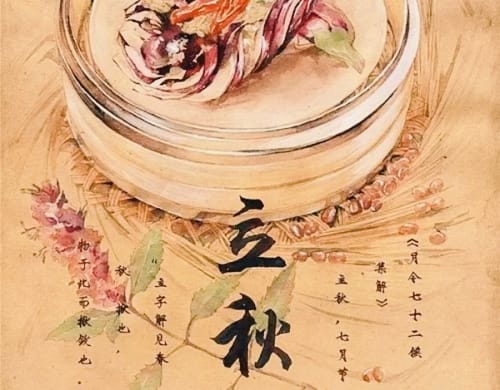 立秋
《月令七十二候
集解》
立秋，七月节
“立字解见春
秋，揪也，
物于此而揪敛也。